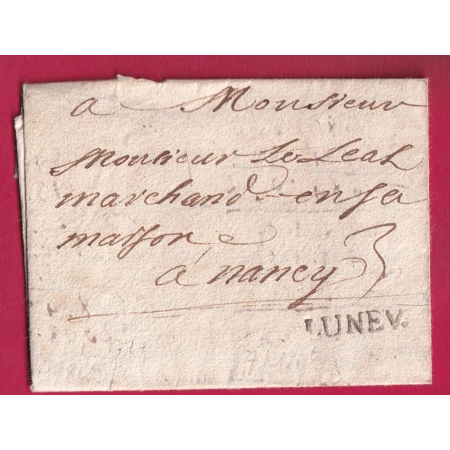 a Monsieur
Monsieur Le Leal
marchand en sa
maison
a nancy 3
LUNEV.